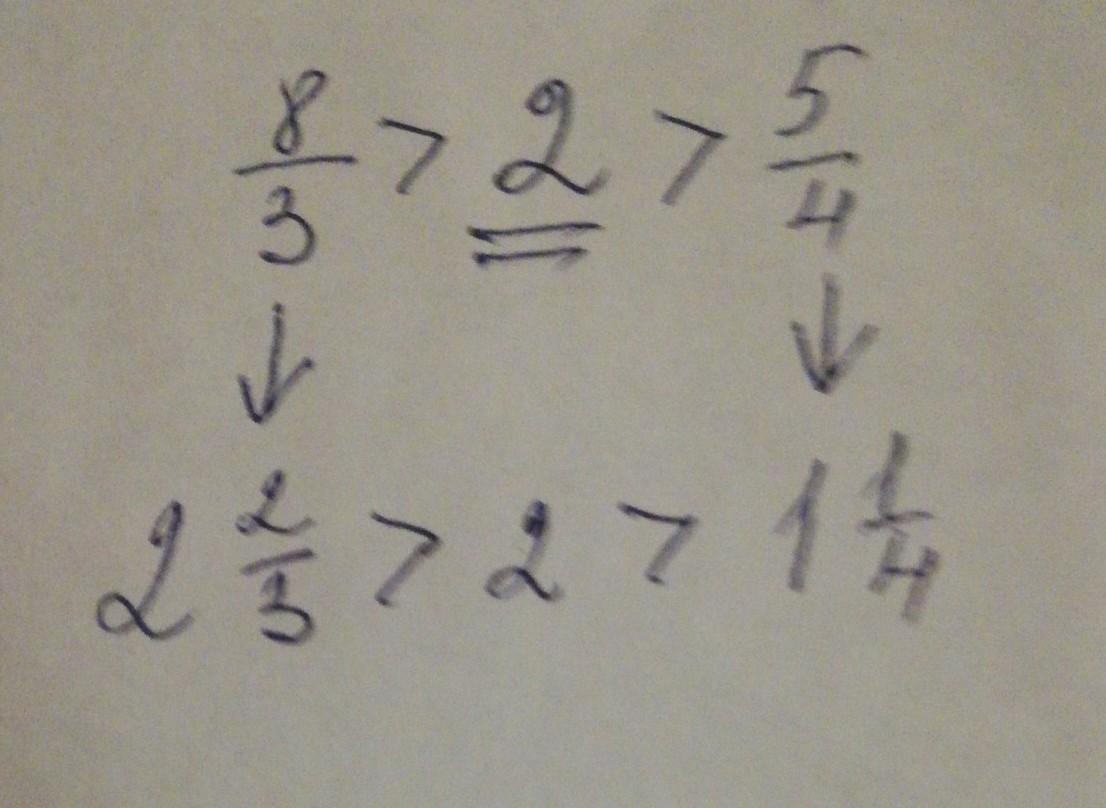 8/3 > 2 > 5/4
↓ ↓
2 2/3 > 2 > 1 1/4